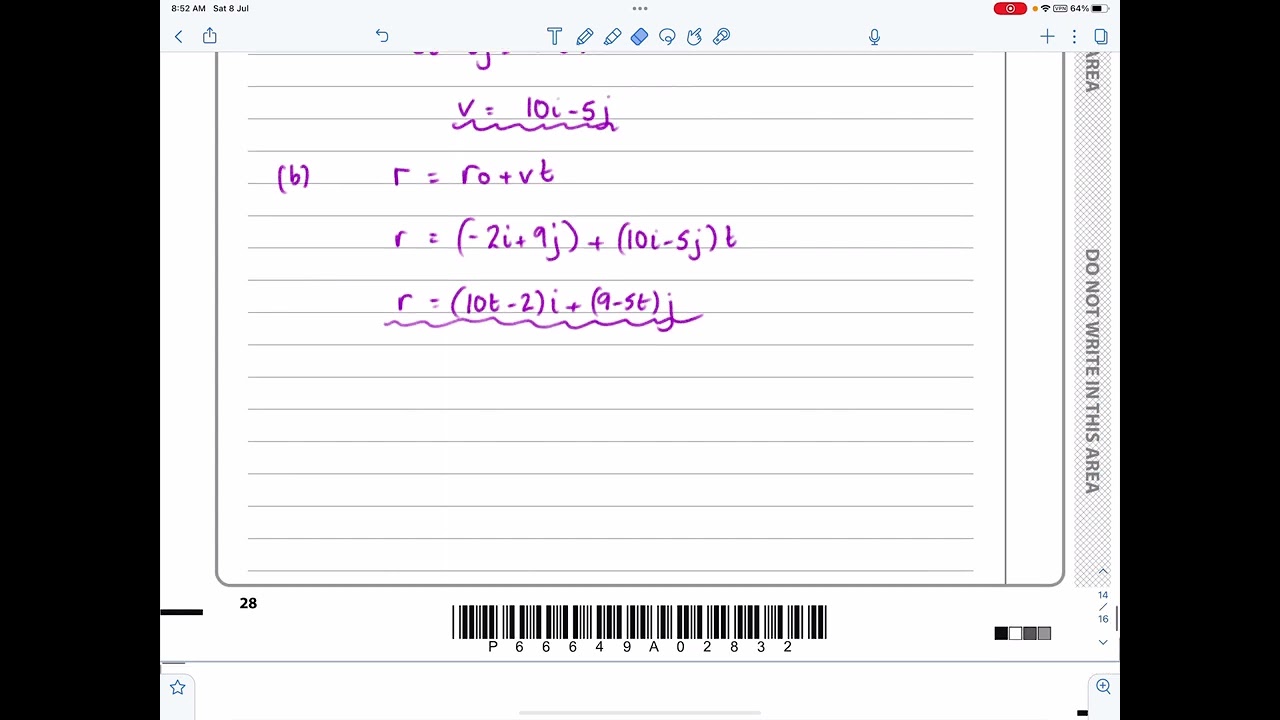 8:52 AM Sat 8 Jul
VPN 64%
AREA
v = 10i-5j
(b) r = ro+vt
r = (-2i+9j) + (10i-5j)t
r = (10t-2)i+(9-5t)j
DO NOT WRITE IN THIS AREA
28
P66649A02832
14
/
16